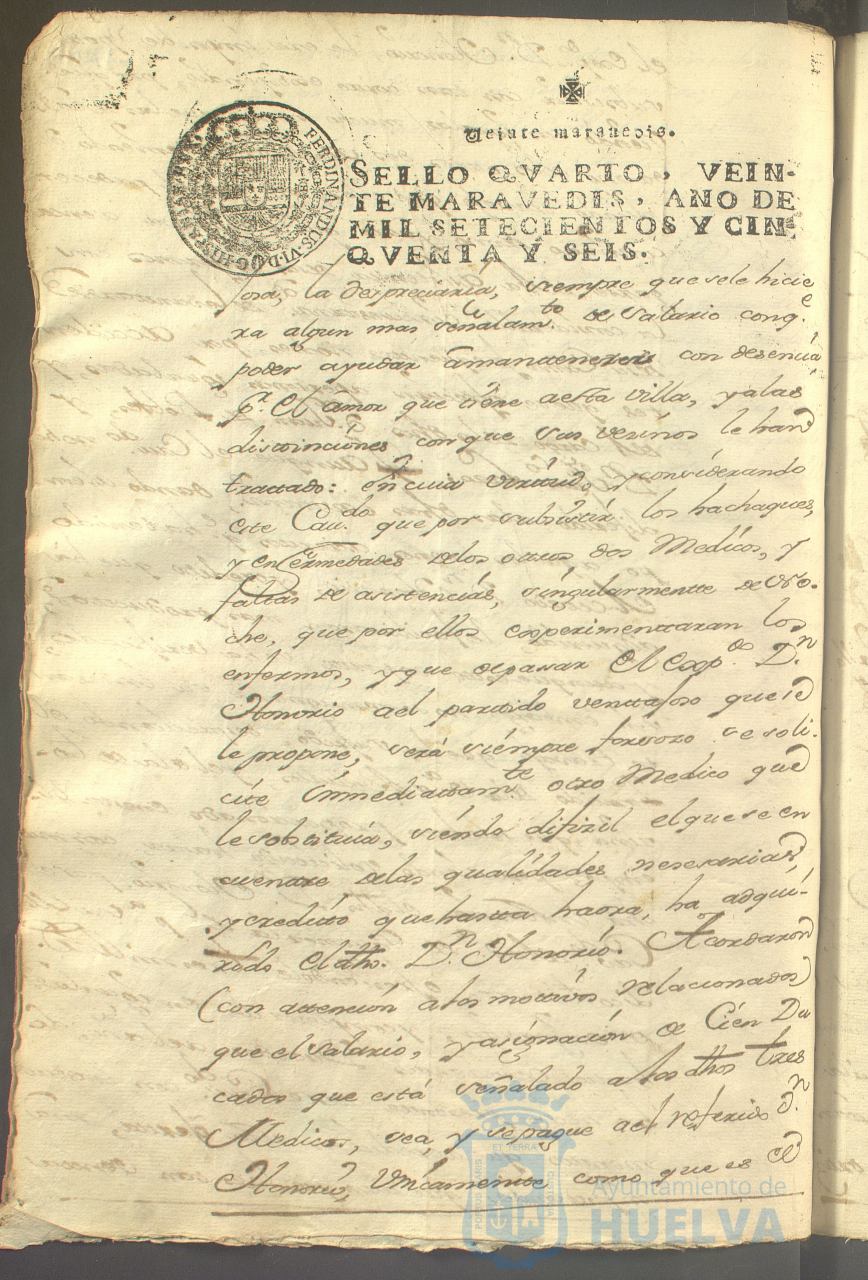 Veinte maravedis.
SELLO QVARTO, VEIN-
TE MARAVEDIS, AÑO DE
MIL SETECIENTOS Y CIN-
QVENTA Y SEIS.
FERDINANDUS·VI·D·G·HISPANIAR·REX
josa, la despreciaria, siempre que sele hicie
ra algun mas señalam.to de salario conq.e
poder ayudar amantenerse con desencia,
p.r el amor que tiene aesta villa, yalas
distinciones con que sus vesinos le han
trattado: en cuia virtud, y considerando
este Cav.do que por subsistir los hachaques,
y enfermedades delos otros dos Medicos, y
faltas de asistencias, singularmentte de no-
che, que por ellos experimenttaran los
enfermos, y que depasar el exp.do D.n
Honorio ael partido venttajoso que se
le propone, será siempre forsoso se soli-
cite immediattam.te otro Medico que
le sobstituia, siendo difizil el que se en
cuentre delas qualidades nesesarias,
y credito que hasta haora, ha adqui-
rido el dho. D.n Honorio. Acordaron
(con attención a los motivos relacionados)
que el salario, y asignación de Cien Du
cados que está señalado a los dhos tres
Medicos, sea, y se pague ael referido D.n
Honorio, unicamente como que es el
Ayuntamiento de
HUELVA